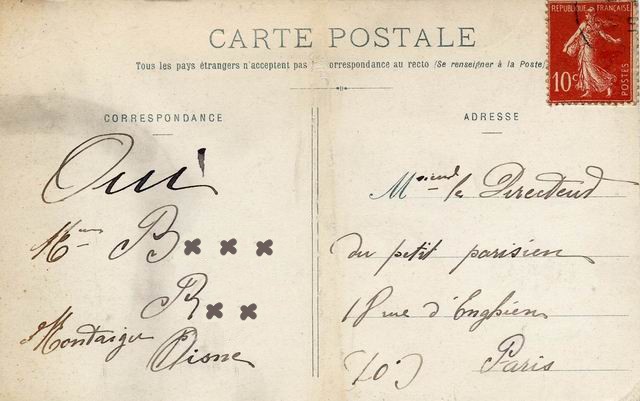 CARTE POSTALE
Tous les pays étrangers n'acceptent pas correspondance au recto (Se renseigner à la Poste)
RÉPUBLIQUE FRANÇAISE
10c
POSTES
CORRESPONDANCE
Oui
Mme B
R
Montaigu
Aisne
ADRESSE
Monsieur le Directeur
du petit parisien
18 rue d'Enghien
Paris